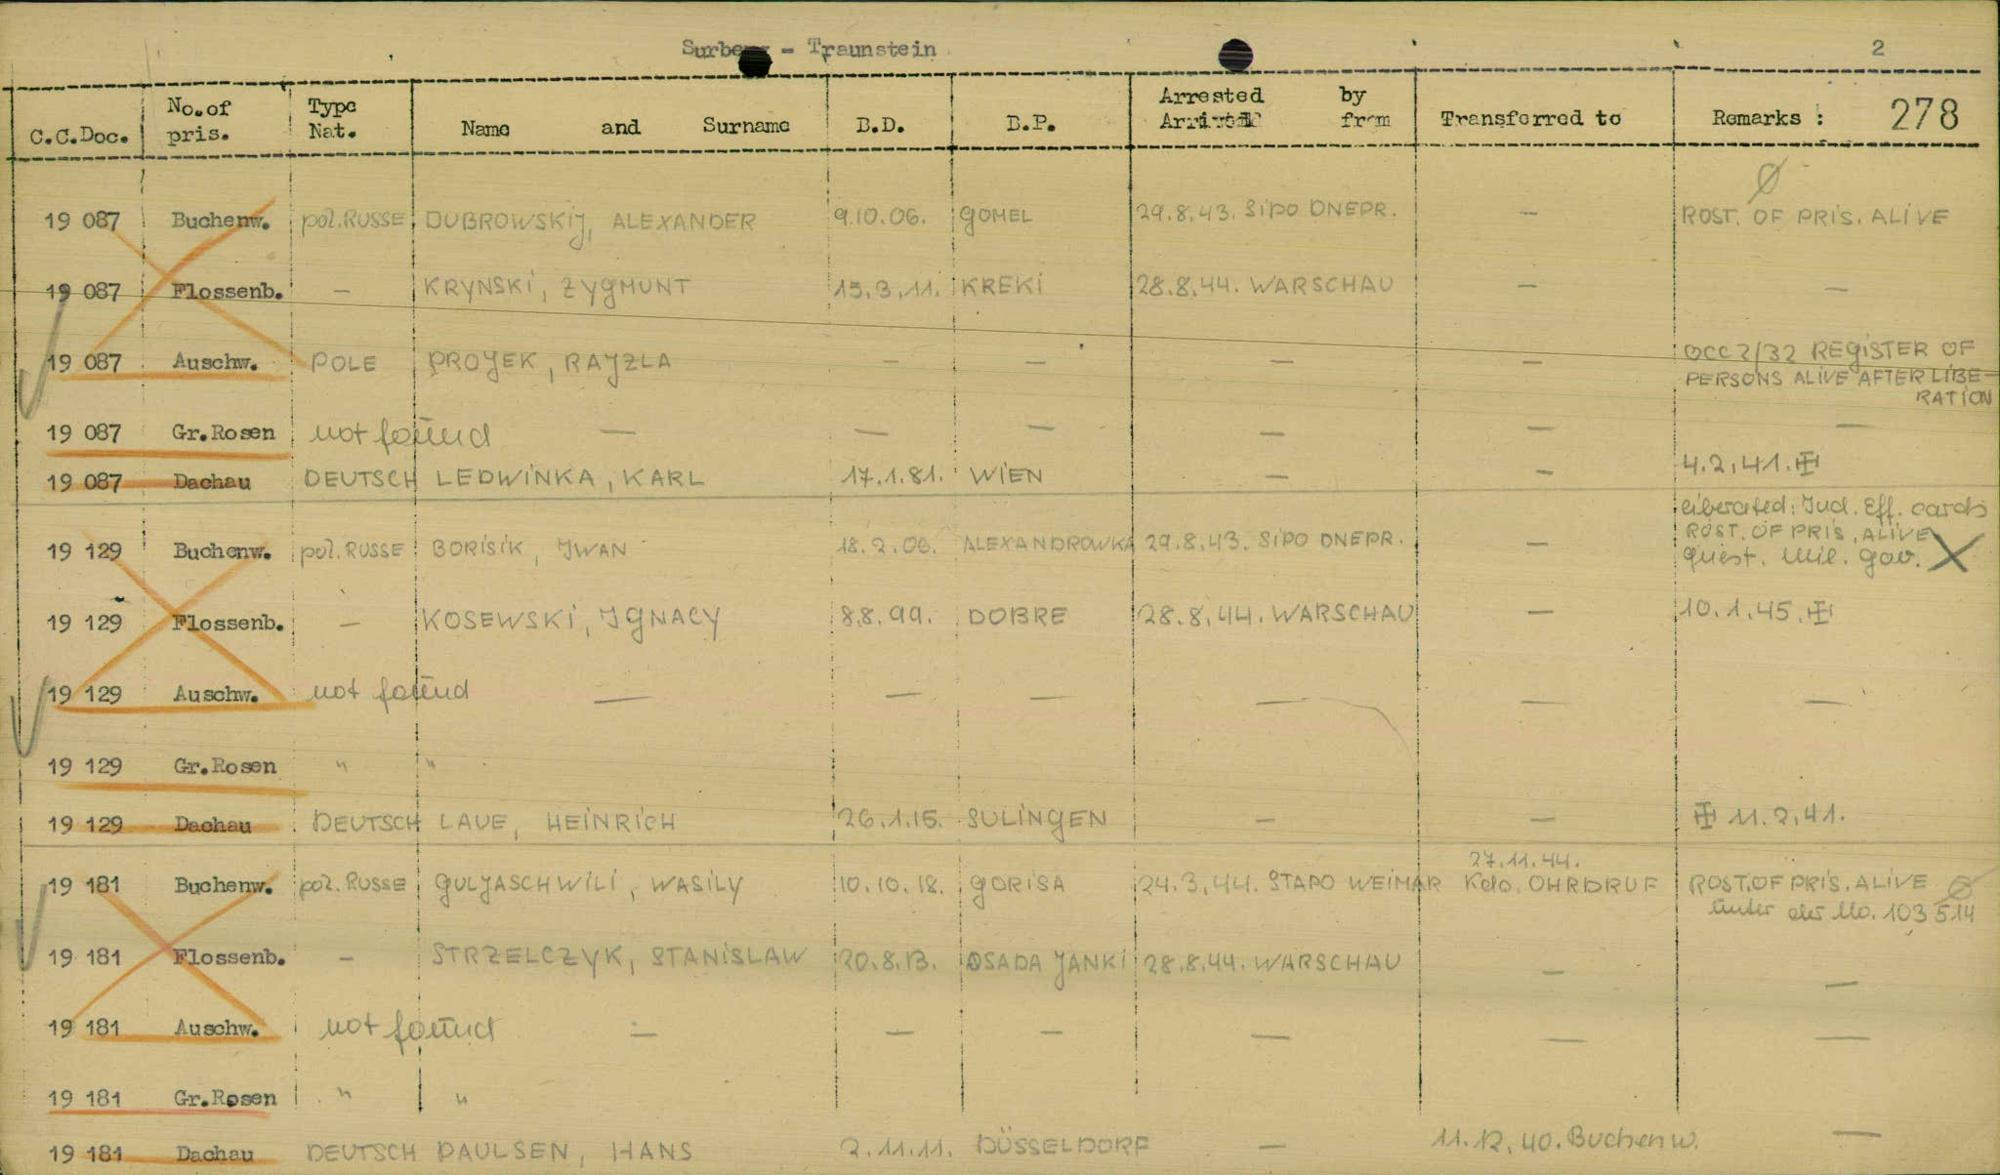 Surberg - Traunstein 2
C.C.Doc. No.of pris. Type Nat. Name and Surname B.D. B.P. Arrested by Arrived from Transferred to Remarks : 278
Ø
19 087 Buchenw. pol.RUSSE DUBROWSKIJ, ALEXANDER 9.10.06. GOMEL 29.8.43. SIPO DNEPR. — ROST. OF PRIS. ALIVE
19 087 Flossenb. — KRYNSKI, ZYGMUNT 15.3.11. KREKI 28.8.44. WARSCHAU — —
19 087 Auschw. POLE PROJEK, RAJZLA — — — — OCC 2/32 REGISTER OF
PERSONS ALIVE AFTER LIBE-
RATION
19 087 Gr.Rosen not found — — — — — —
19 087 Dachau DEUTSCH LEDWINKA, KARL 17.1.81. WIEN — — 4.2.41. ✠
liberated: Ind. Eff. cards
19 129 Buchenw. pol.RUSSE BORISIK, IWAN 18.2.06. ALEXANDROWKA 29.8.43. SIPO DNEPR. — ROST. OF PRIS. ALIVE
quest. mil. gov. X
19 129 Flossenb. — KOSEWSKI, IGNACY 8.8.99. DOBRE 28.8.44. WARSCHAU — 10.1.45. ✠
19 129 Auschw. not found — — — — — —
19 129 Gr.Rosen " "
19 129 Dachau DEUTSCH LAUE, HEINRICH 26.1.15. SULINGEN — — ✠ 11.2.41.
27.11.44.
19 181 Buchenw. pol.RUSSE GULJASCHWILI, WASILY 10.10.18. GORISA 24.3.44. STAPO WEIMAR Kdo. OHRDRUF ROST.OF PRIS. ALIVE Ø
unter der No. 103 514
19 181 Flossenb. — STRZELCZYK, STANISLAW 20.8.13. OSADA JANKI 28.8.44. WARSCHAU — —
19 181 Auschw. not found — — — — — —
19 181 Gr.Rosen " "
19 181 Dachau DEUTSCH PAULSEN, HANS 2.11.11. DÜSSELDORF — 11.12.40. Buchenw. —